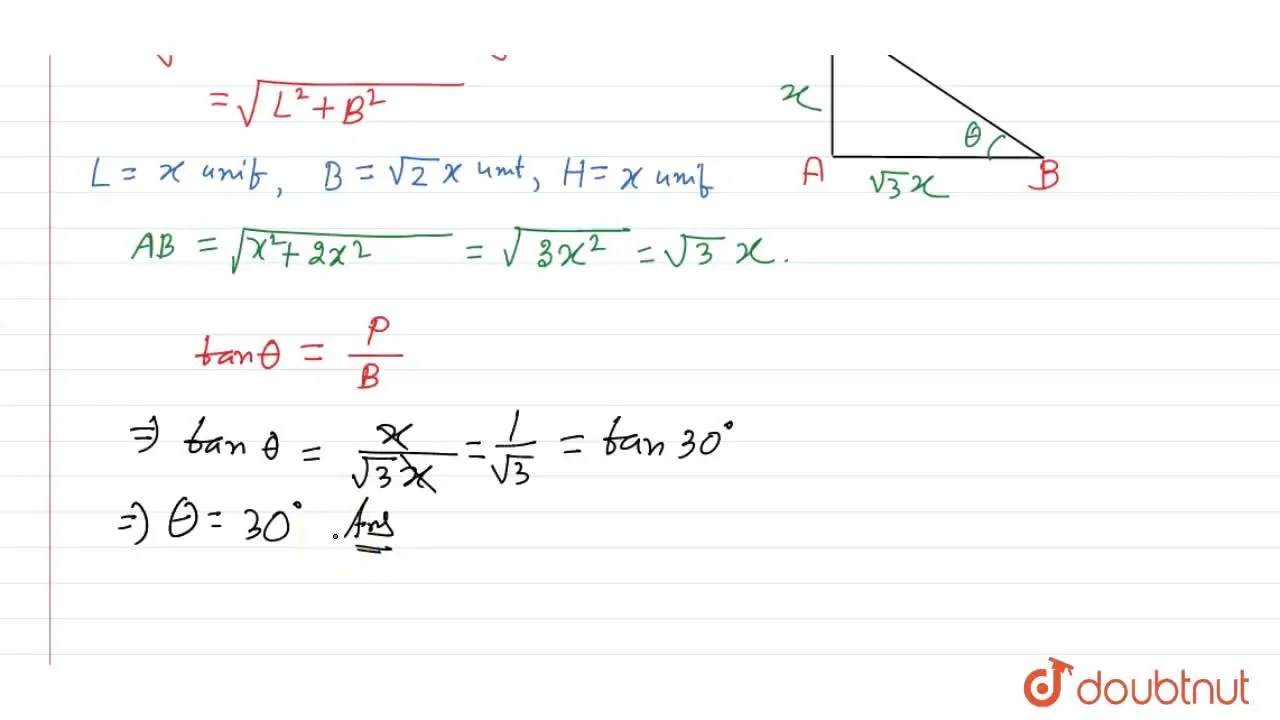 = √(L² + B²)
x
θ
A
√3 x
B
L = x unit, B = √2 x unit, H = x unit
AB = √(x² + 2x²) = √(3x²) = √3 x.
tan θ = P/B
⇒ tan θ = x/(√3 x) = 1/√3 = tan 30°
⇒ θ = 30° . Ans
doubtnut